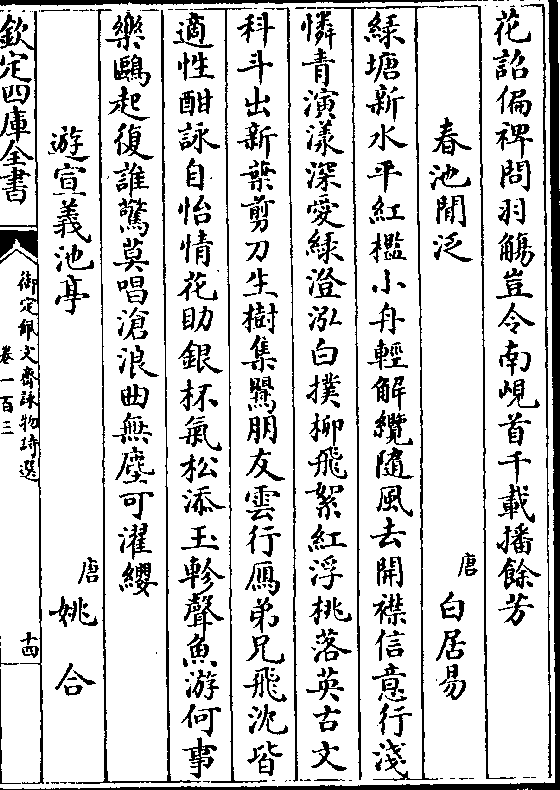 花詔偏裨問羽觴豈令南峴首千載播餘芳
春池閒泛
唐
白居易
綠塘新水平紅檻小舟輕解纜隨風去開襟信意行淺
憐青演漾深愛綠澄泓白撲柳飛絮紅浮桃落英古文
科斗出新葉剪刀生樹集鸎朋友雲行鴈弟兄飛沈皆
適性酣詠自怡情花助銀杯氣松添玉軫聲魚游何事
樂鷗起復誰驚莫唱滄浪曲無塵可濯纓
遊宣義池亭
唐
姚合
欽定四庫全書
御定佩文齋詠物詩選
卷一百三
十四